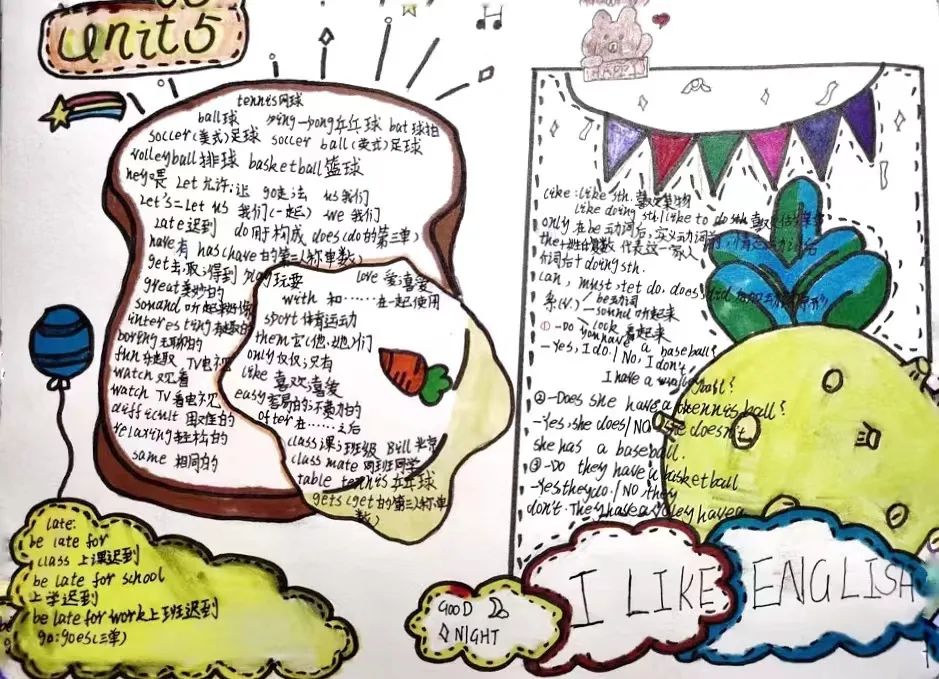 unit5
tennis网球
ball球 ping-pong乒乓球 bat球拍
soccer(美式)足球 soccer ball(英式)足球
volleyball排球 basketball篮球
hey喂 Let允许;让 go走;去 us我们
Let's=Let us 我们(一起) we 我们
Late迟到 do用于构成 does(do的第三单)
have有 has(have的第三人称单数)
get去,取;得到 play玩耍
great美妙的
sound听起来好像
interesting有趣的
boring无聊的
fun有趣 TV电视
watch观看
watch TV看电视
difficult 困难的
relaxing轻松的
same 相同的
love 爱;喜爱
with 和……在一起;使用
sport体育运动
them它(他,她)们
only仅仅;只有
like 喜欢;喜爱
easy容易的;不费力的
after在……之后
class课;班级 Bill 比尔
class mate 同班同学
table tennis乒乓球
gets(get的第三人称单数)
late:
be late for
class 上课迟到
be late for school
上学迟到
be late for work上班迟到
go:goes(三单)
GOOD
NIGHT
Like:like sth.喜欢某物
like doing sth/like to do sth 喜欢
only 在be动词后,实义动词前,情态动词后
the+姓的复数 代表这一家人
介词后+doing sth.
can, must, let do, does did
系(v.) be动词
sound 听起来
look 看起来
①-Do you have a baseball?
-Yes, I do./No, I don't
I have a volleyball?
②-Does she have a tennis ball?
-Yes, she does/No she doesn't
she has a baseball.
③-Do they have a basketball
-Yes they do./No they
don't. They have a volley
I LIKE ENGLISH